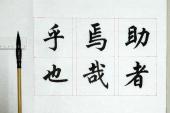 助者
焉哉
乎也